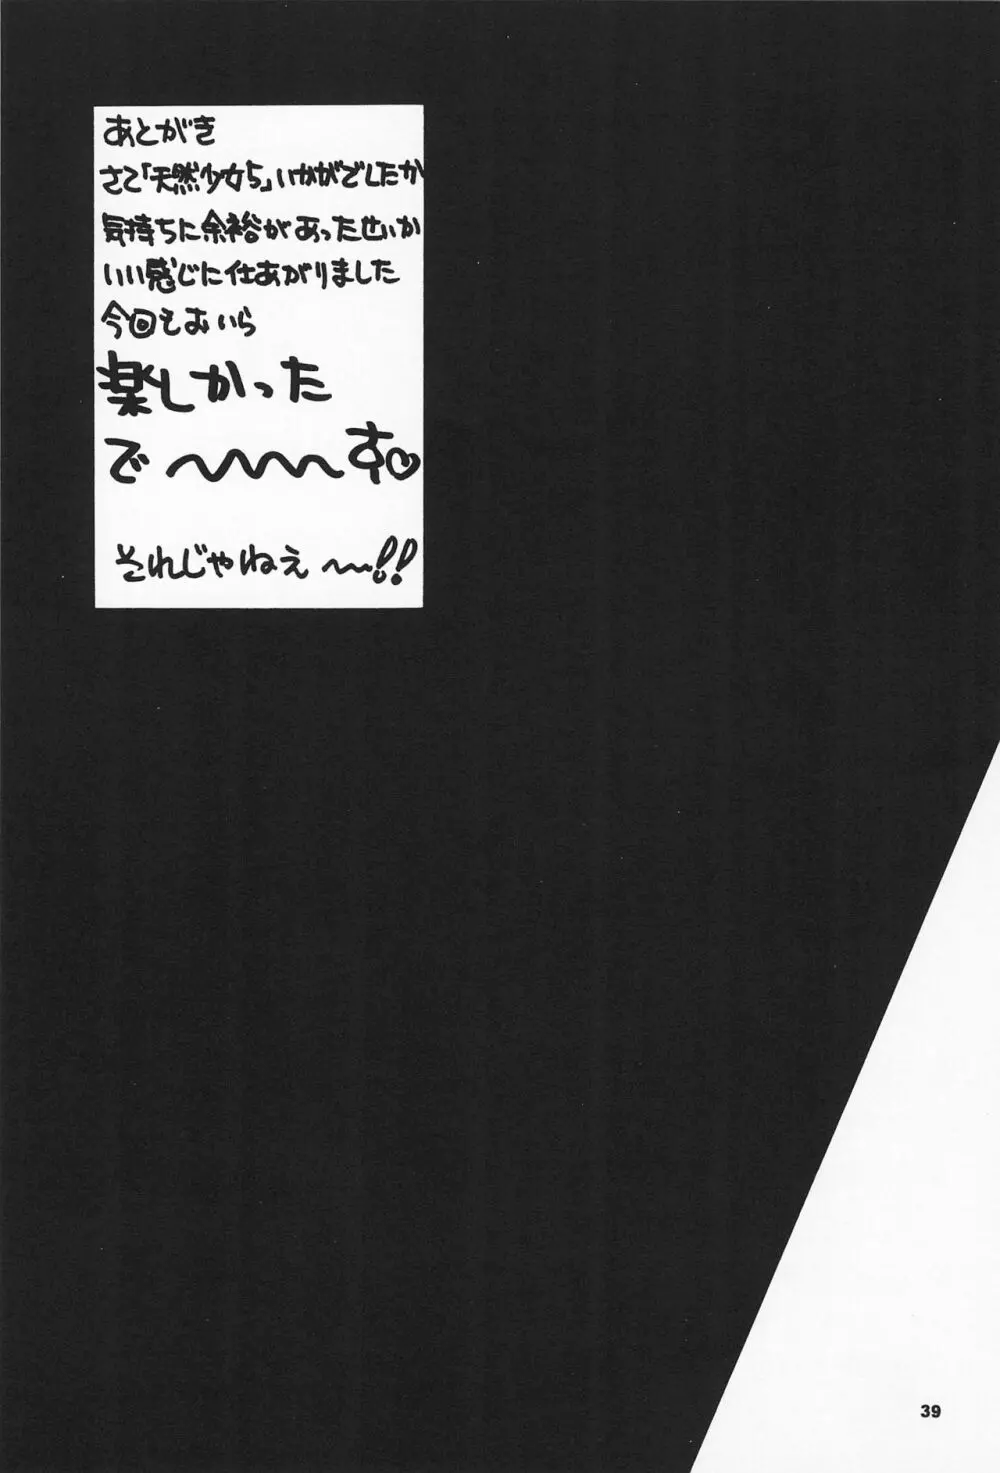 あとがき
さて「天然少女5」いかがでしたか
気持ちに余裕があったせいか
いい感じに仕あがりました
今回もおいら
楽しかった
で〜〜〜〜す♡
それじゃねえ〜〜!!
39